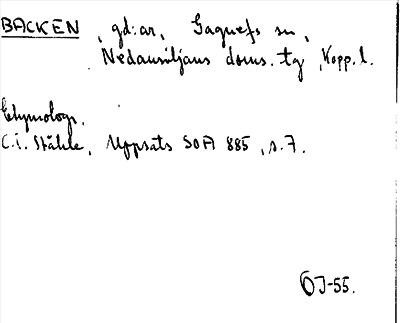 BACKEN, gd:ar, Gagnefs sn,
Nedansiljans doms. tg, Kopp. l.
Etymologi.
C.I. Ståhle, Uppsats SOA 885, s. 7.
ÖJ-55.